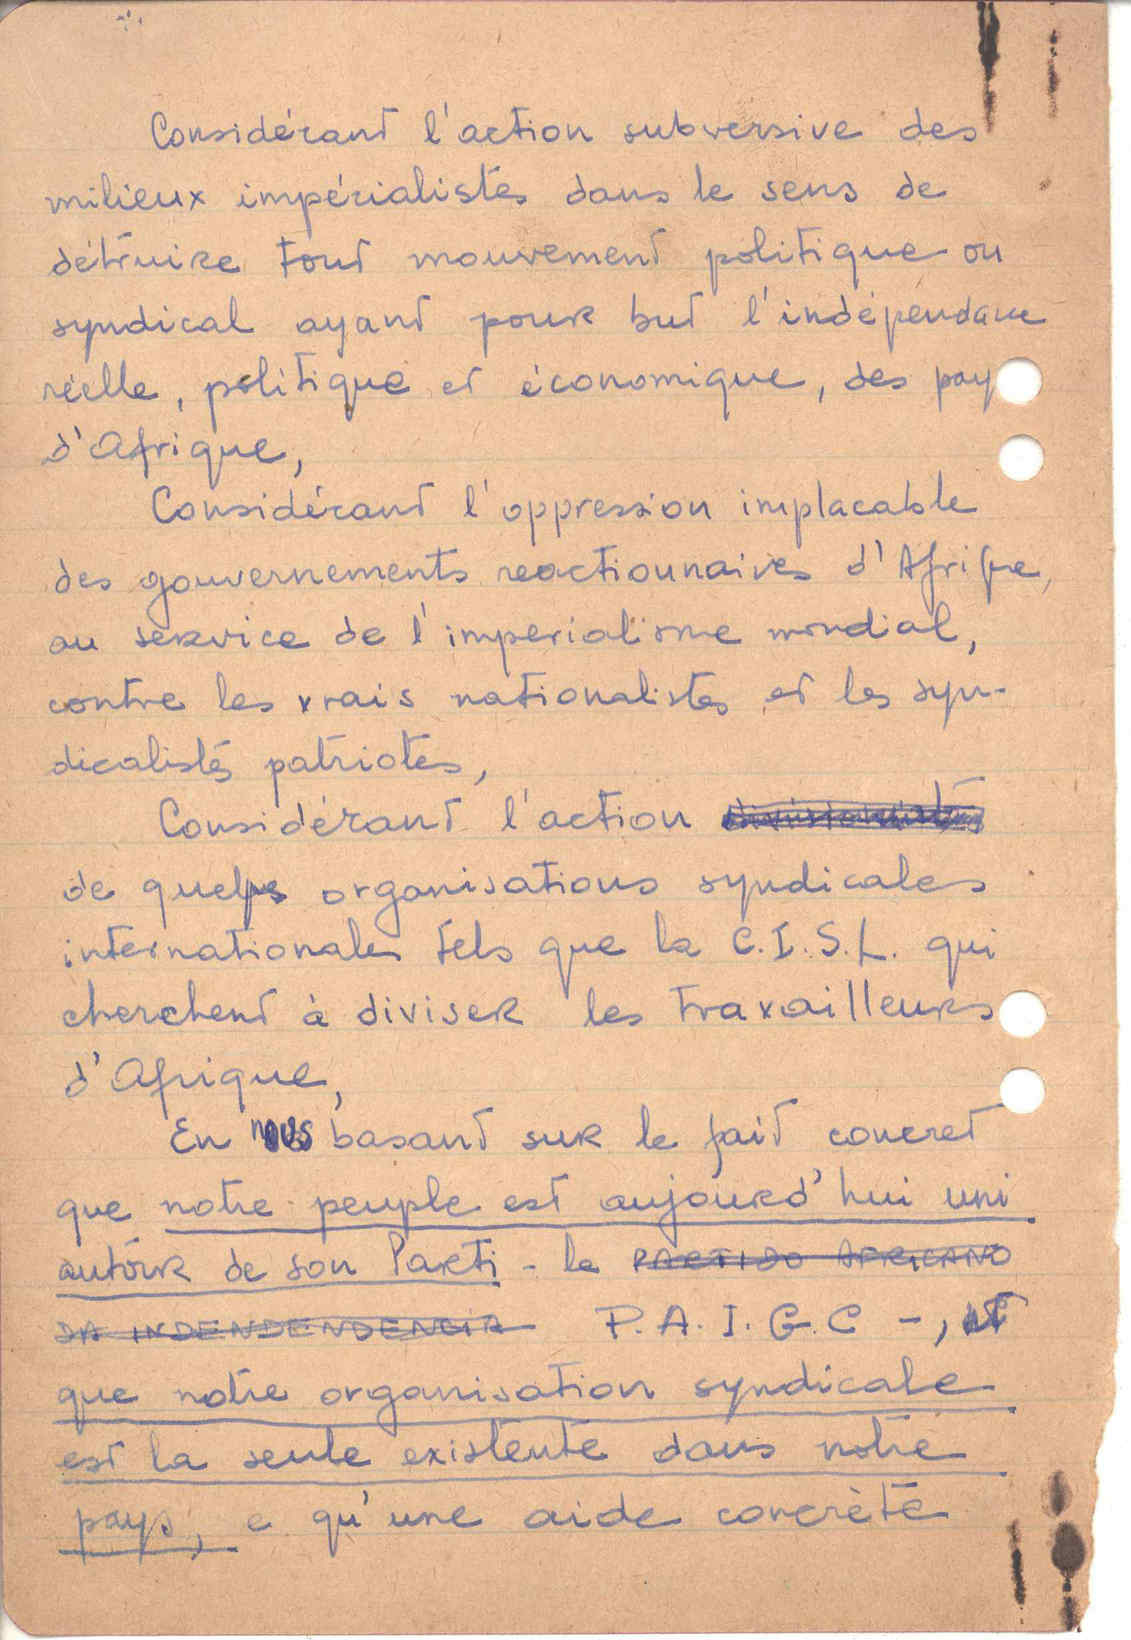 Considérant l'action subversive des
milieux impérialistes dans le sens de
détruire tout mouvement politique ou
syndical ayant pour but l'indépendance
réelle, politique et économique, des pay
d'Afrique,
Considérant l'oppression implacable
des gouvernements reactionnaires d'Afrique,
au service de l'imperialisme mondial,
contre les vrais nationalistes et les syn-
dicalistes patriotes,
Considérant l'action divisionnistes
de quelqs organisations syndicales
internationales tels que la C.I.S.L. qui
cherchent à diviser les travailleurs
d'Afrique,
En nous basant sur le fait concret
que notre peuple est aujourd'hui uni
autour de son Parti - le PARTIDO AFRICANO
DA INDENDENDENCIA P.A.I.G.C -, et
que notre organisation syndicale
est la seule existente dans notre
pays, e qu'une aide concrète